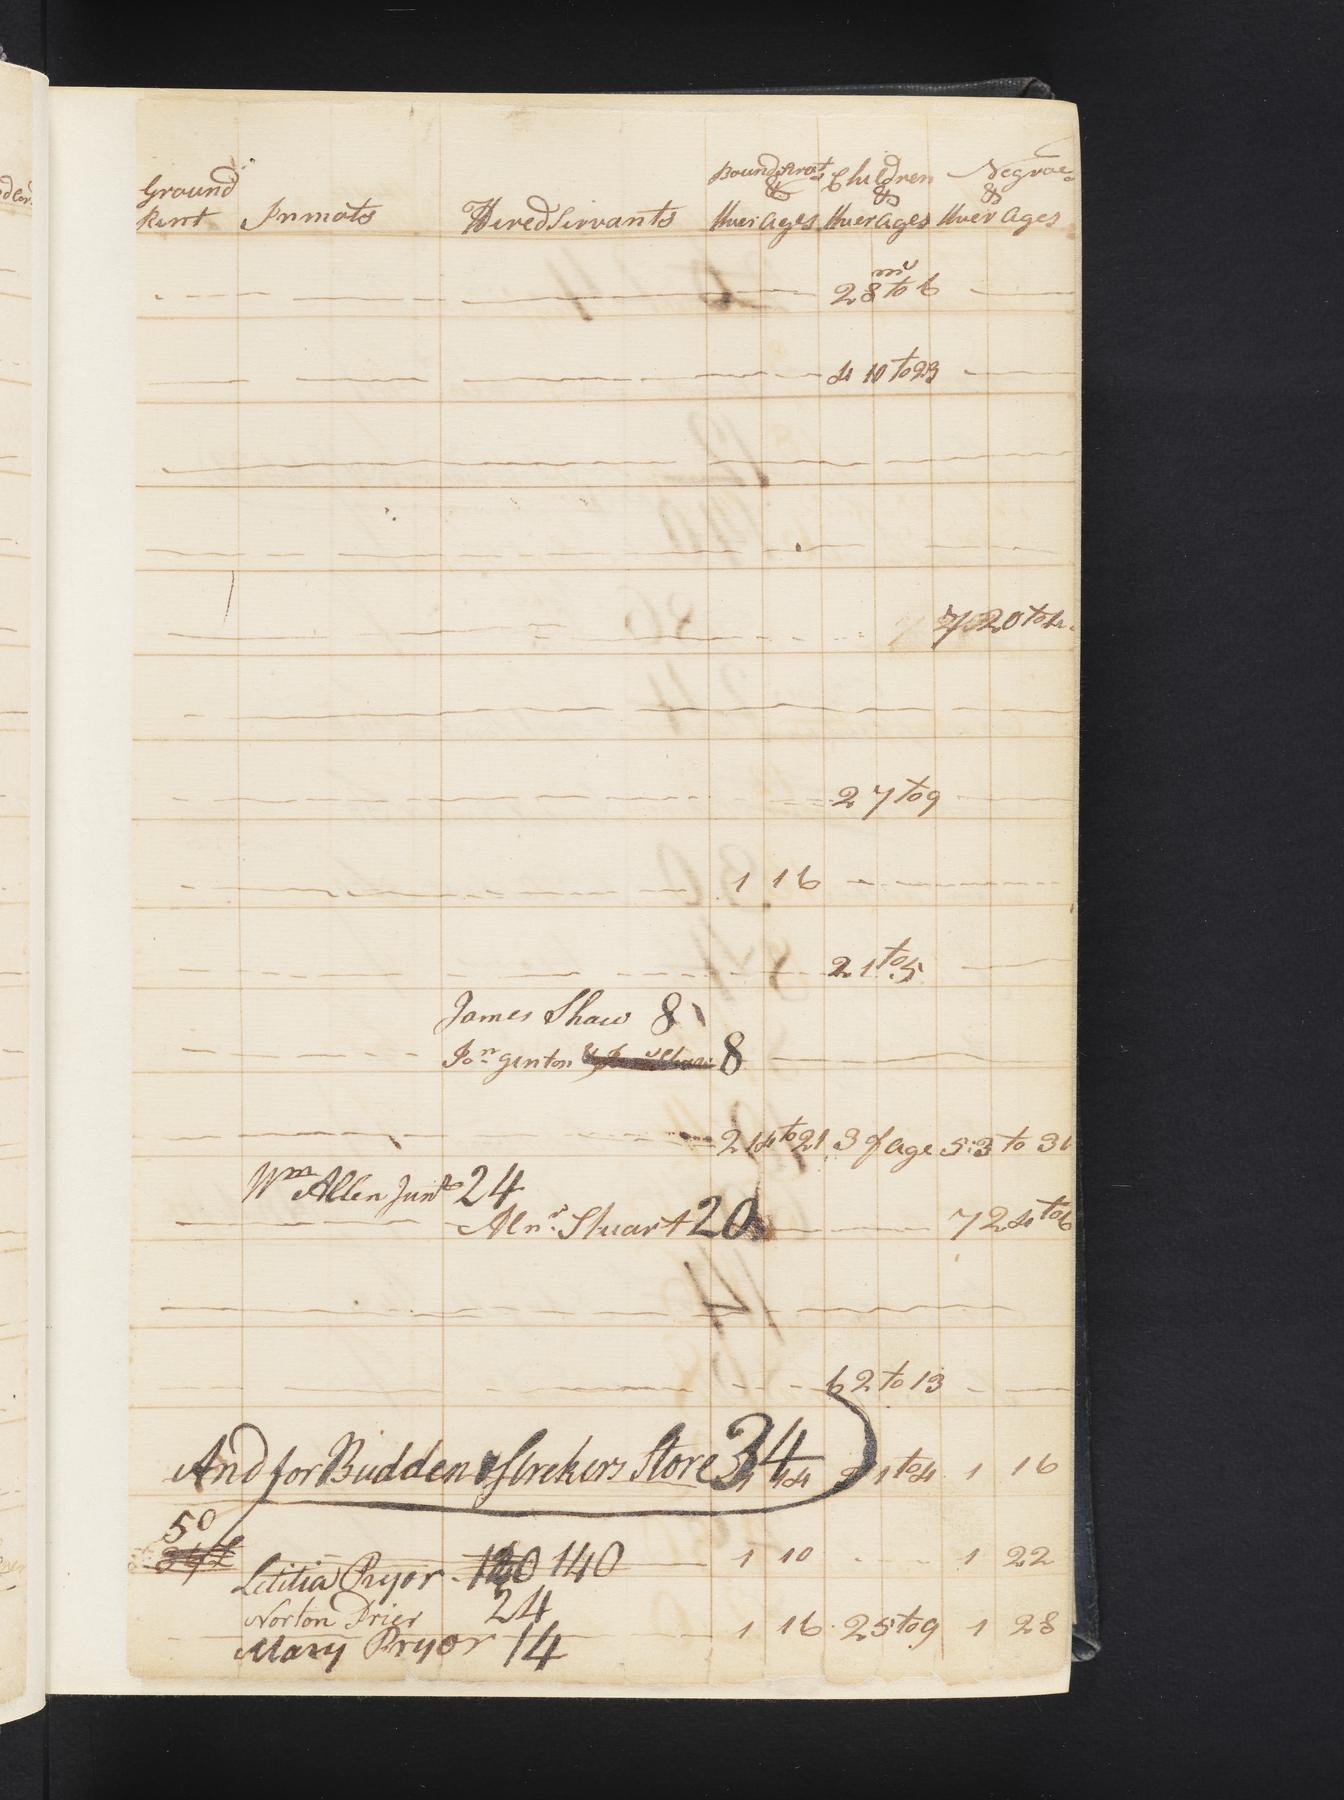 Ground Rent Inmats Hired Servants Bound Servts & their Ages Children & their Ages Negroes & their Ages
2 8mo to 6
4 10 to 23
7 20 to
2 7 to 9
1 16
2 1 to 5
James Shaw 8
Jon. ginton 8
2 14 to 21 3 of age 5:3 to 31
Wm Allen Junr 24
Alnr. Stuart 20 7 24 to 6
6 2 to 13
And for Budden & Strekers Store 34 1 14 2 1 to 4 1 16
50
Letitia Pryor 140 1 10 1 22
Norton Prier 24
Mary Pryor 14 1 16 2 5 to 9 1 28